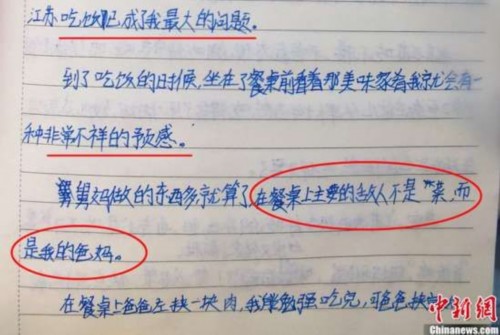 江苏吃饭已成了我最大的问题。
到了吃饭的时候，坐在了餐桌前看着那美味家肴我就会有一
种非常不祥的预感。
舅舅妈做的东西多就算了在餐桌上主要的敌人不是"菜，而
是我的爸妈。
在餐桌上爸爸左挟一块肉，我继勉强吃完，可爸爸挟
中新网
Chinanews.com